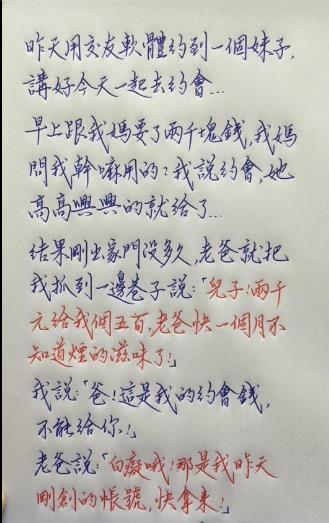 昨天用交友軟體約到一個妹子,
講好今天一起去約會...
早上跟我媽要了兩千塊錢,我媽
問我幹嘛用的?我說約會,她
高高興興的就給了...
結果剛出家門沒多久,老爸就把
我抓到一邊巷子說:「兒子!兩千
元給我個五百,老爸快一個月不
知道煙的滋味了!」
我說:「爸!這是我的約會錢,
不能給你!」
老爸說:「白癡哦!那是我昨天
剛創的帳號,快拿來!」